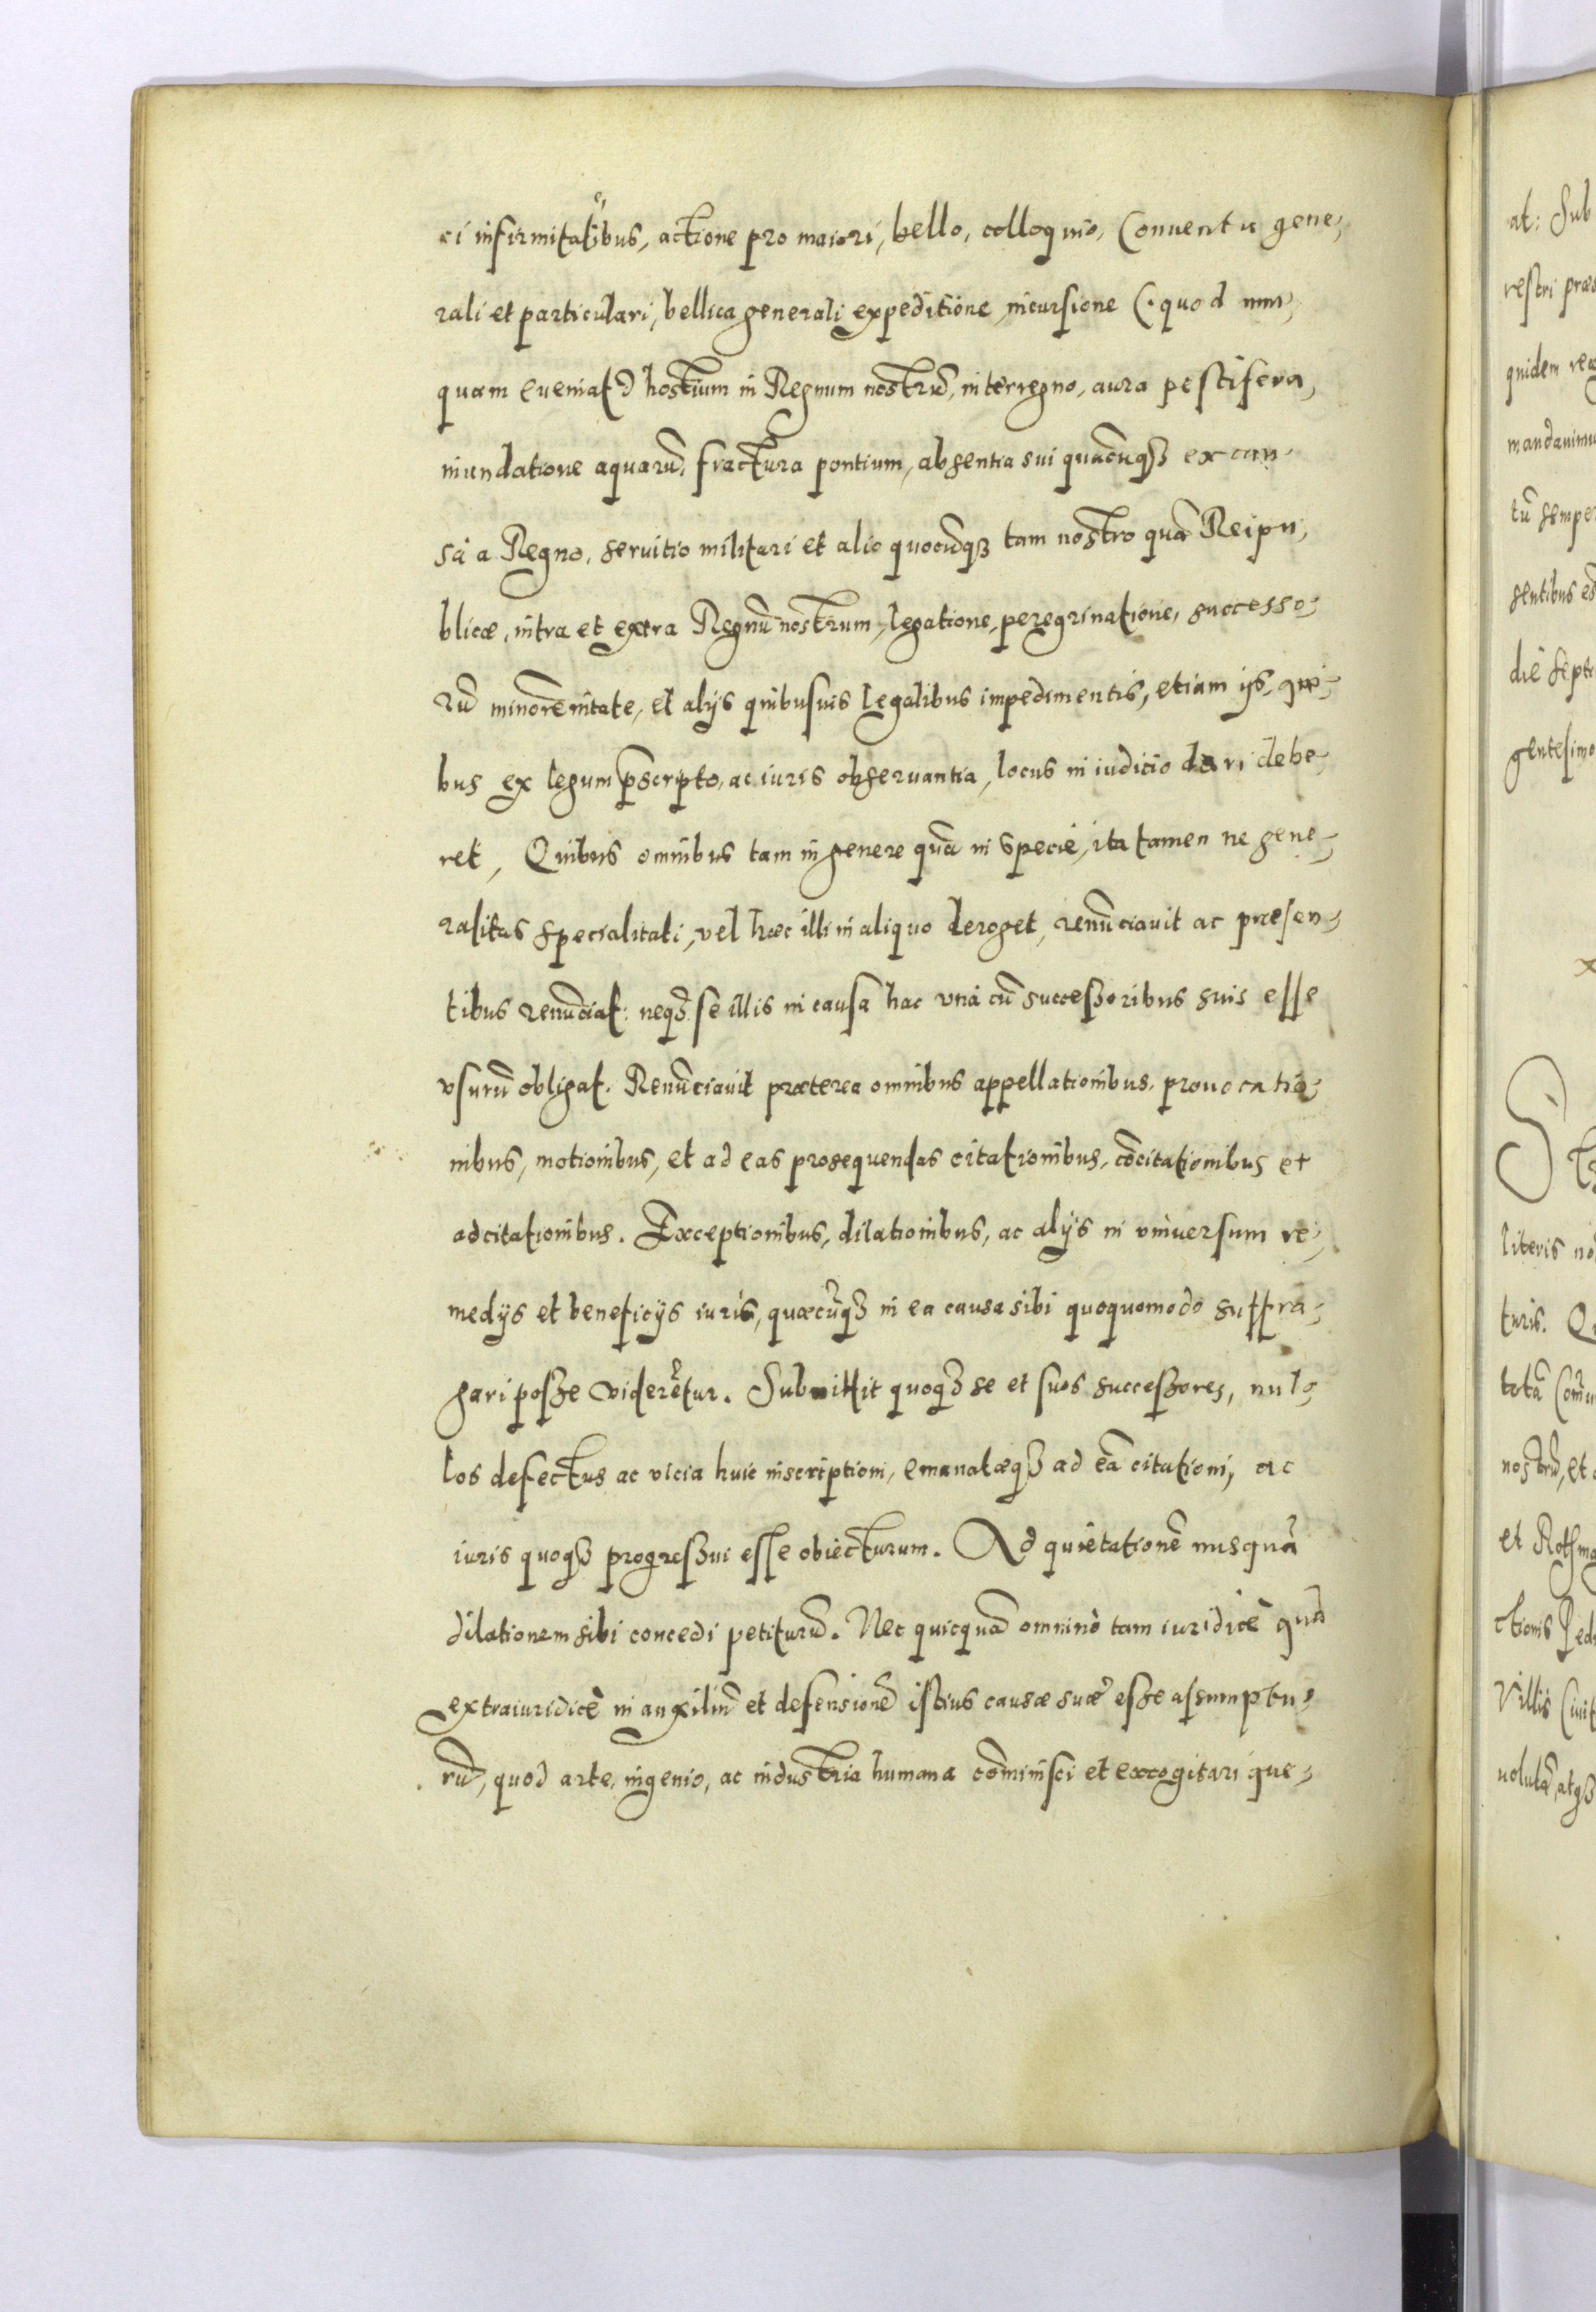 ri infirmitatibus, actione pro maiori, bello, colloquio, Conuentu gene,
rali et particulari, bellica generali expeditione, incursione (quod nun,
quam eueniat) hostium in Regnum nostrũ, interregno, aura pestifera,
inundatione aquarũ, fractura pontium, absentia sui quacũqꝫ ex cau,
sa a Regno, seruitio militari et alio quocũqꝫ tam nostro quã Reipu,
blicæ, intra et extra Regnũ nostrum, legatione, peregrinatione, successo,
rũ minorẽnitate, et alijs quibusuis legalibus impedimentis, etiam ijs, qui,
bus ex legum p̃scripto, ac iuris obseruantia, locus in iudicio dari debe,
ret, Quibus omnibus tam in genere quã in specie, ita tamen ne gene,
ralitas specialitati, vel hæc illi in aliquo deroget, renũciauit ac præsen,
tibus renũciat: neqꝫ se illis in causa hac vnà cũ successoribus suis esse
vsurũ obligat. Renũciauit præterea omnibus appellationibus, prouocatio,
nibus, motionibus, et ad eas prosequendas citationibus, cõcitationibus et
adcitationibus. Exceptionibus, dilationibus, ac alijs in vniuersum re,
medijs et beneficijs iuris, quæcũqꝫ in ea causa sibi quoquomodo suffra,
gari posse viderẽtur. Submittit quoqꝫ se et suos successores, nul,
los defectus ac vicia huic inscriptioni, emanatæqꝫ ad eã citationi, ac
iuris quoqꝫ progressui esse obiecturum. Ad quietationẽ nusquã
dilationem sibi concedi petiturũ. Nec quicquã omninò tam iuridicè quã
extraiuridicè in auxiliũ et defensionẽ istius causæ suæ esse assumptu,
rũ, quod arte, ingenio, ac industria humana cõminisci et excogitari que,
at: Sub
restri præs
quidem
mandauimu
tũ sempe
sentibus
die Septe
gentesimo
literis no
turis. Qu
totã Comu
nostrũ, et
et Rothma
ctionis Ped
Villis Ciuit
uolutã, atqꝫ